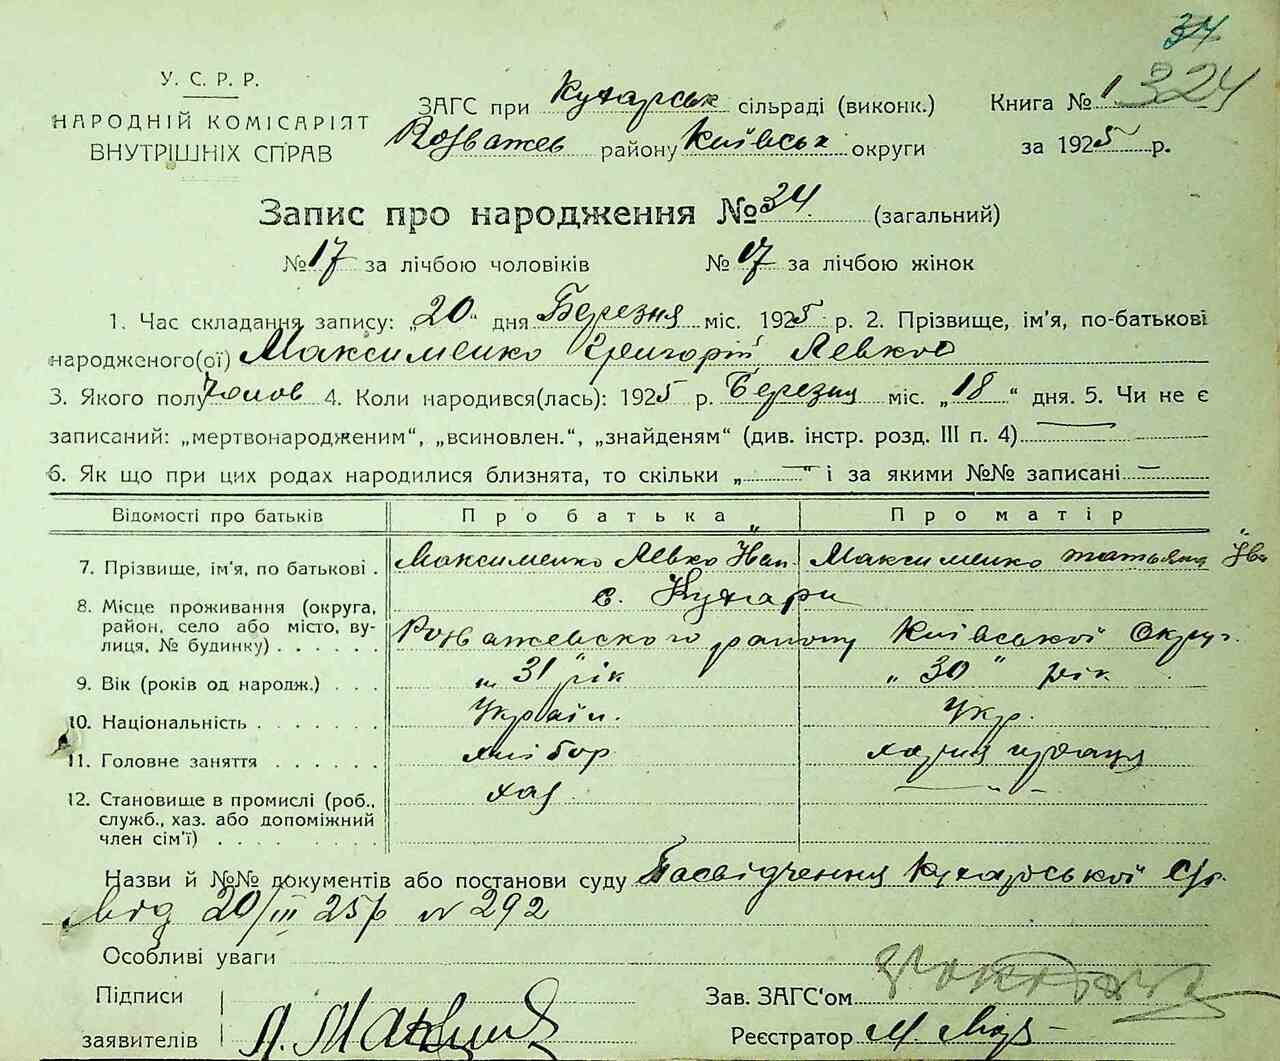 34
324
У. С. Р. Р.
НАРОДНІЙ КОМІСАРІЯТ
ВНУТРІШНІХ СПРАВ
ЗАГС при Кухарськ сільраді (виконк.)
Розважев району Київськ округи
Книга № 1
за 1925 р.
Запис про народження № 34 (загальний)
№ 17 за лічбою чоловіків № 17 за лічбою жінок
1. Час складання запису: „20“ дня Березня міс. 1925 р. 2. Прізвище, ім'я, по-батькові
народженого(ої) Максименко Григорій Левков
3. Якого полу чолов 4. Коли народився(лась): 1925 р. Березня міс. „18“ дня. 5. Чи не є
записаний: „мертвонародженим“, „всиновлен.“, „знайденям“ (див. інстр. розд. III п. 4)
6. Як що при цих родах народилися близнята, то скільки „ “ і за якими №№ записані
Відомості про батьків Про батька Про матір
7. Прізвище, ім'я, по батькові . Максименко Левко Іван Максименко Татьяна Ів
8. Місце проживання (округа, район, село або місто, вулиця, № будинку) . . . . . . с. Кухари
Розважевского району Київської Округ.
9. Вік (років од народж.) . . . „31“ рік „30“ рік
10. Національність . . . . . . . Україн. Укр.
11. Головне заняття . . . . . . хлібор хатня праця
12. Становище в промислі (роб., служб., хаз. або допоміжний член сім'ї) . . . . . . . . хаз - „ -
Назви й №№ документів або постанови суду Посвідчення Кухарської С/р.
від 20/III 25р N 292
Особливі уваги
Підписи
заявителів
Зав. ЗАГС'ом
Реєстратор